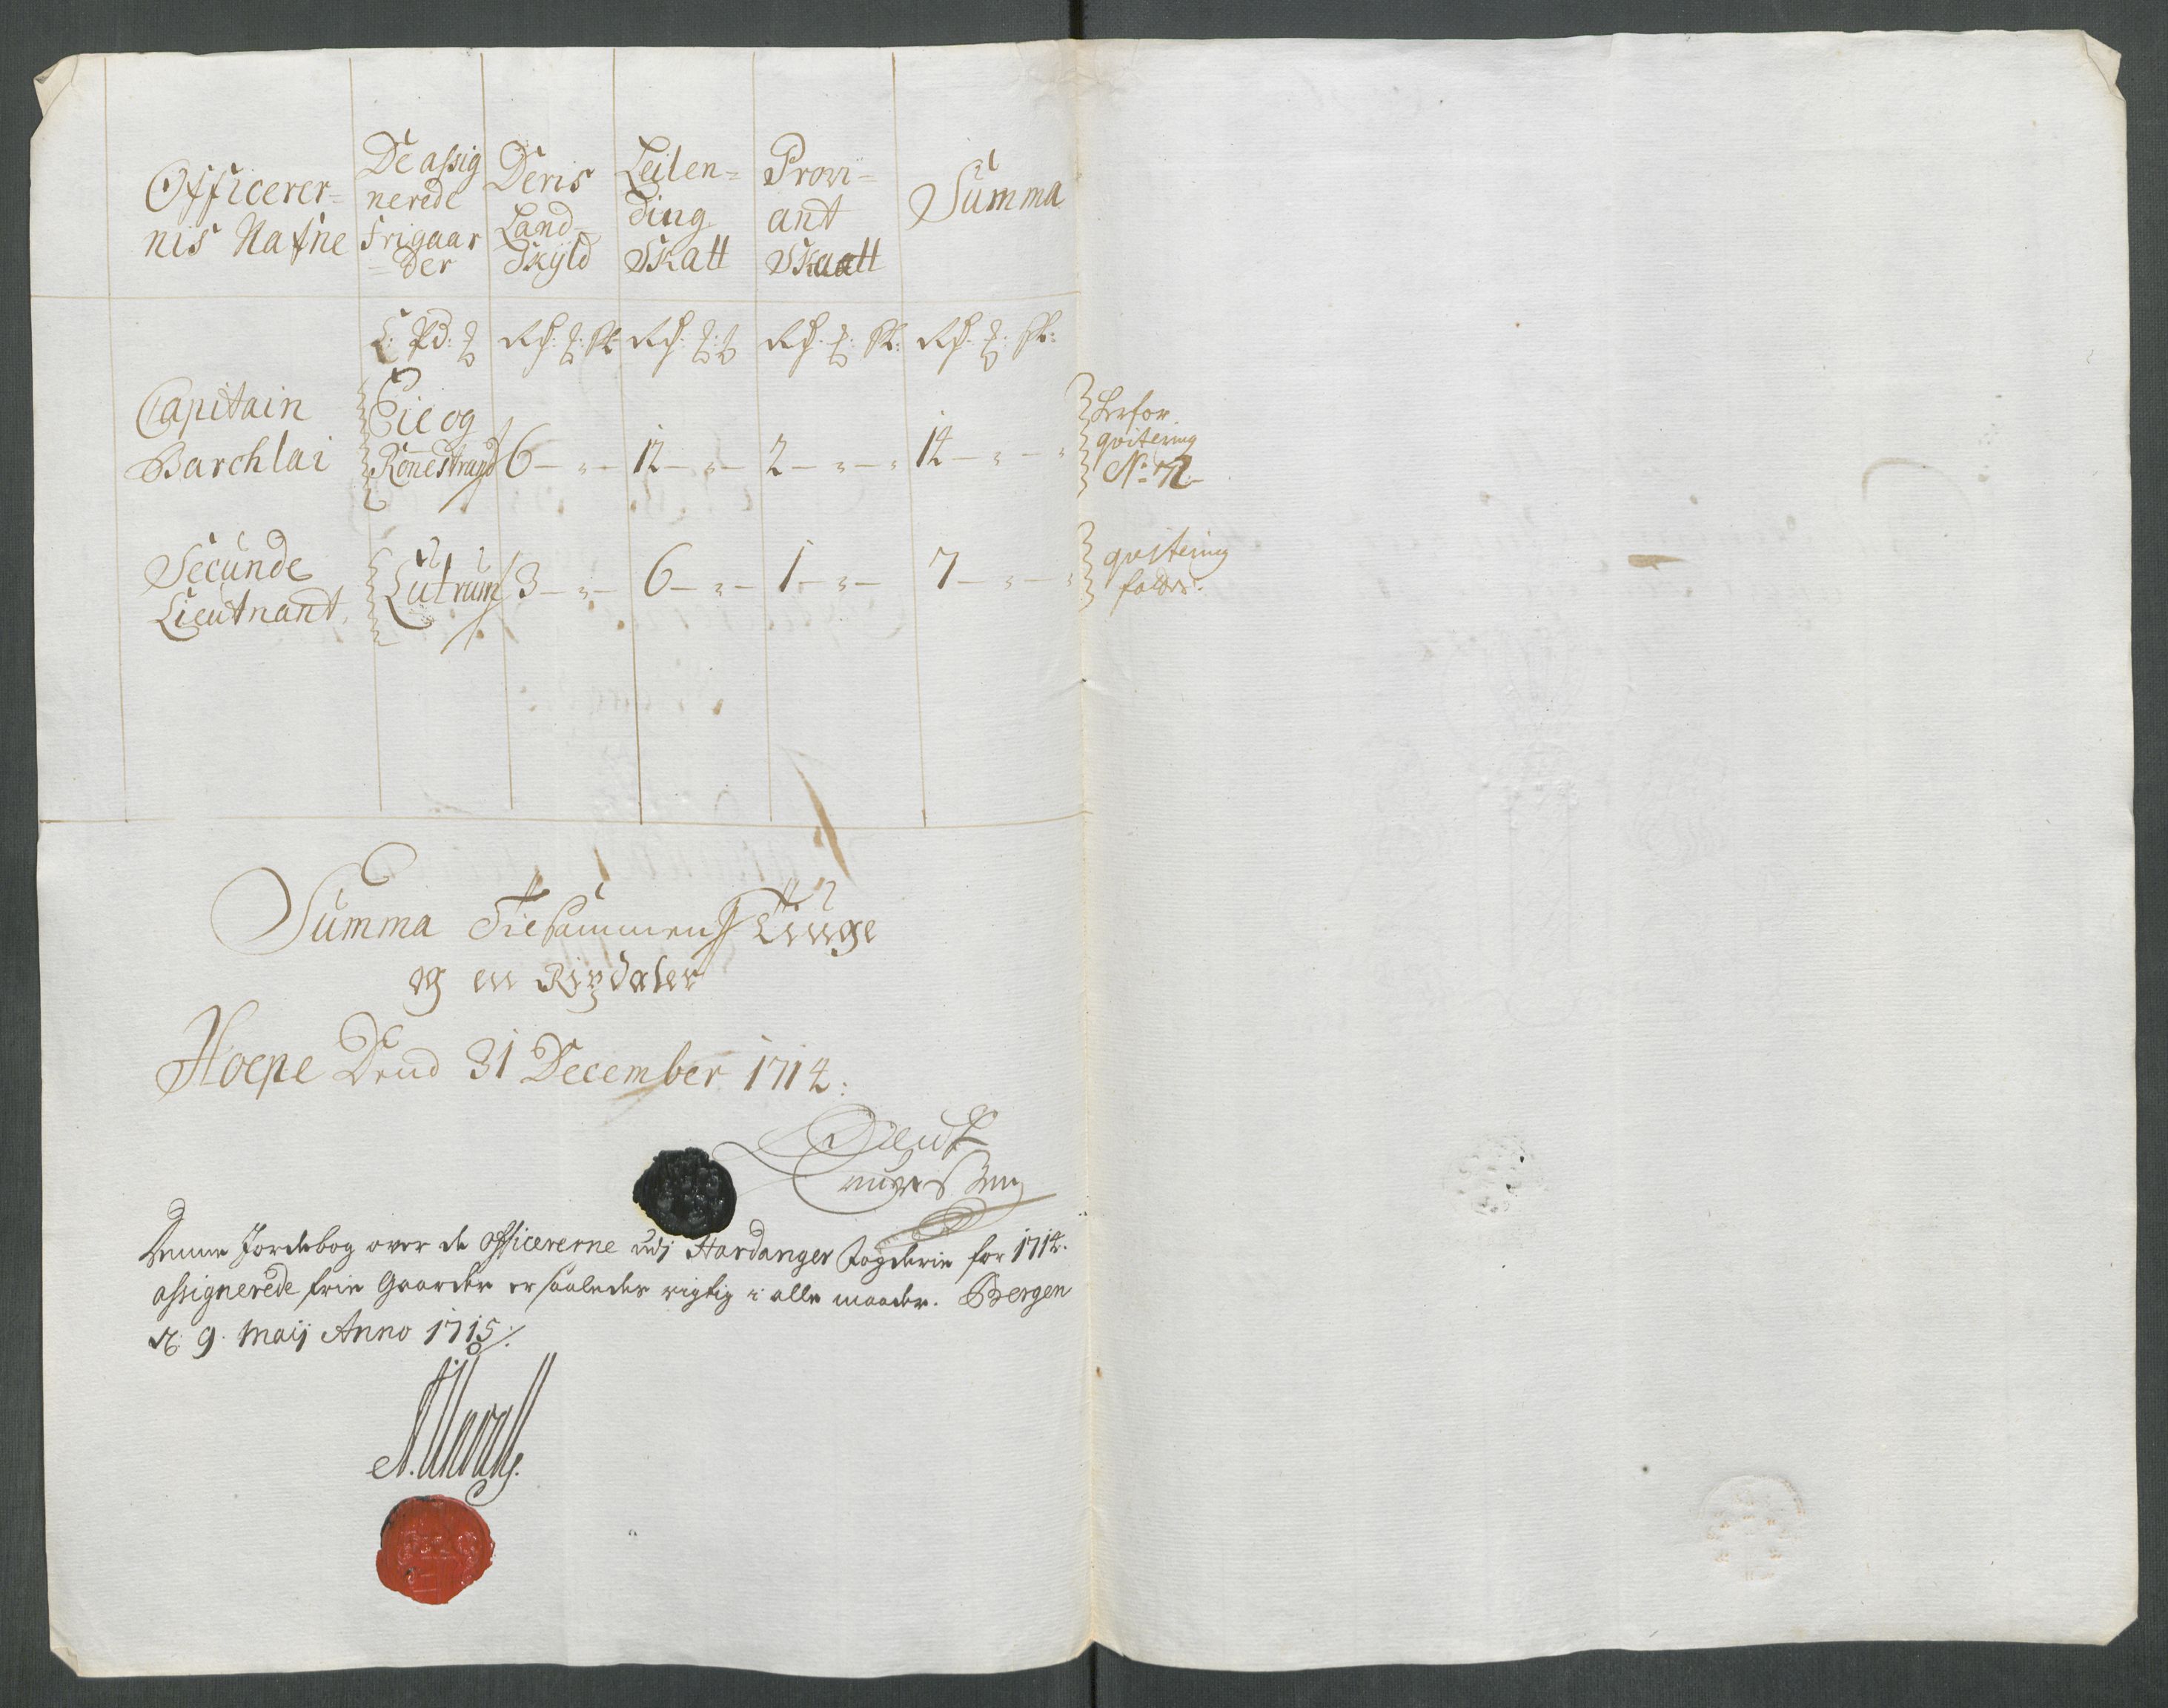 Officerer=
nis Nafne
De assig
nerede
frigaar
=der
Deris
Land-
Skyld
Leilen=
ding
Skatt
Provi=
ant
Skatt
Summa
Capitain
Barchlai
Eie og
Rønestrand
6 — „ —
12 — „ —
2 — „ — „
14 — „ — „
qvitering
Secunde
Lieutnant
Lutrum
3 — „ —
6 — „ —
1 — „ —
7 — „ — „
qvitering
Summa Tilsammen Tiuge
og en Rixdaler
Hoepe Dend 31 December 1714:
Denne Jordebog over de Officererne udj Hardanger fogderie for 1714.
assignerede frie Gaarder er saaledes rigtig i alle maader. Bergen
d: 9. Maij Anno 1715